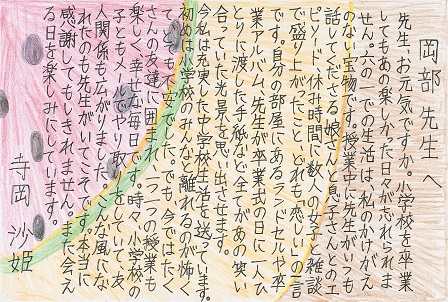 岡部先生へ
先生、お元気ですか。小学校を卒業
してもあの楽しかった日々が忘れられま
せん。六の一での生活は、私のかけがえ
のない宝物です。授業中に先生がいつも
話してくださる娘さんと息子さんとのエ
ピソード、休み時間に数人の女子と雑談
で盛り上がったこと、どれも「恋しい」の一言
です。自分の部屋にあるランドセルや卒
業アルバム、先生が卒業式の日に一人ひ
とりに渡した手紙など全てがあの笑い
合っていた光景を思い出させます。
今私は充実した中学校生活を送っています。
初めは小学校のみんなと離れるのが怖く
て、とても不安でした。でも、今ではたく
さんの友達に囲まれ、一つ一つの授業も
楽しく、幸せな毎日です。時々、小学校の
子ともメールでやり取りをしていて、友
人関係も広がりました。こんな風にな
れたのも先生がいてこそです。本当に
感謝してもしきれません。また会え
る日を楽しみにしています。
寺岡 沙姫